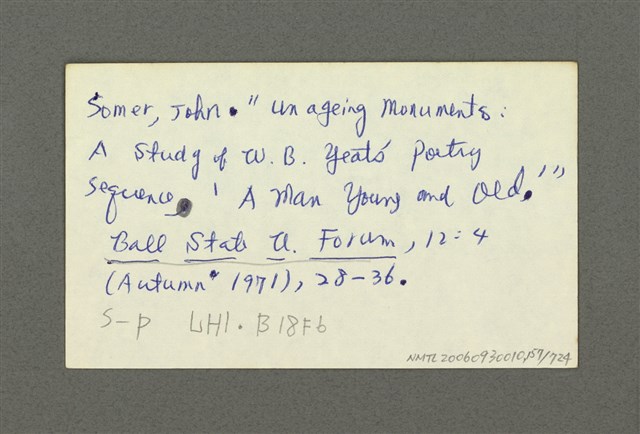 Somer, John. " Unageing Monuments:
A Study of W. B. Yeats' Poetry
Sequence, ' A Man Young and Old.' "
Ball State U. Forum, 12:4
(Autumn 1971), 28-36.
S-p LH1. B18F6
NMTL20060930010,157/724